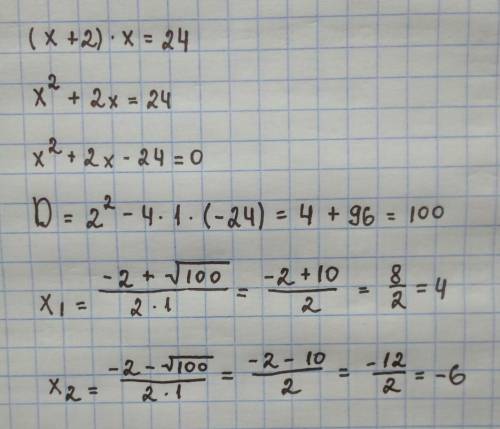 (x + 2) · x = 24
x² + 2x = 24
x² + 2x - 24 = 0
D = 2² - 4 · 1 · (-24) = 4 + 96 = 100
x₁ = (-2 + √100)/(2 · 1) = (-2 + 10)/2 = 8/2 = 4
x₂ = (-2 - √100)/(2 · 1) = (-2 - 10)/2 = -12/2 = -6